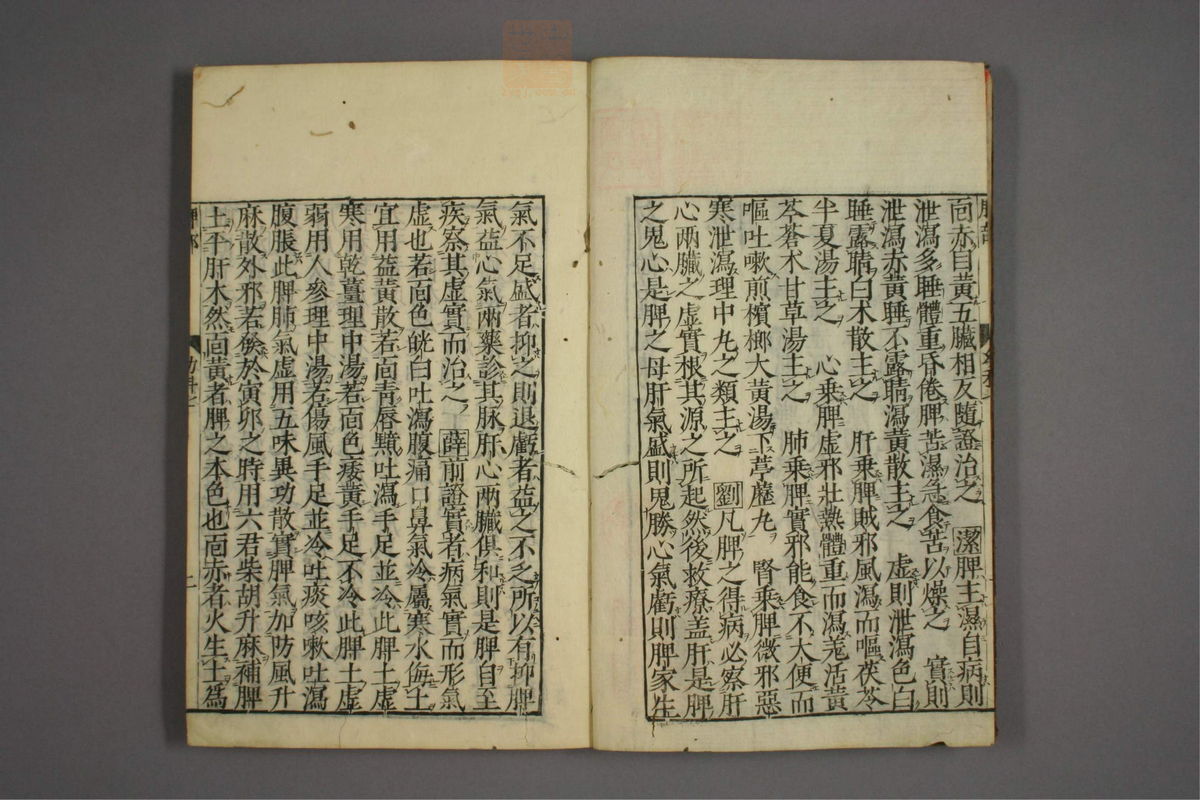 面赤自黃五臟相反隨證治之　潔脾主濕自病則
泄瀉多睡體重昏倦脾苦濕急食苦以燥之　實則
泄瀉赤黃睡不露睛瀉黃散主之　虛則泄瀉色白
睡露睛白朮散主之　肝乗脾賊邪風瀉而嘔茯苓
半夏湯主之　心乗脾虛邪壯熱體重而瀉羗活黃
芩蒼朮甘草湯主之　肺乗脾實邪能食不大便而
嘔吐嗽煎檳榔大黃湯下葶藶丸　腎乗脾微邪惡
寒泄瀉理中丸之類主之　劉凡脾之得病必察肝
心兩臟之虛實根其源之所起然後救療盖肝是脾
之鬼心是脾之母肝氣盛則鬼勝心氣虧則脾家生
氣不足盛者抑之則退虧者益之不乏所以有抑脾
氣益心氣兩藥診其脉肝心兩臟俱和則是脾自至
疾察其虛實而治之　薛前證實者病氣實而形氣
虛也若面色㿠白吐瀉腹痛口鼻氣冷屬寒水侮土
宜用益黃散若面青唇黯吐瀉手足並冷此脾土虛
寒用乾薑理中湯若面色痿黃手足不冷此脾土虛
弱用人參理中湯若傷風手足並冷吐痰咳嗽吐瀉
腹脹此脾肺氣虛用五味異功散實脾氣加防風升
麻散外邪若發於寅卯之時用六君柴胡升麻補脾
土平肝木然面黃者脾之本色也面赤者火生土爲
二